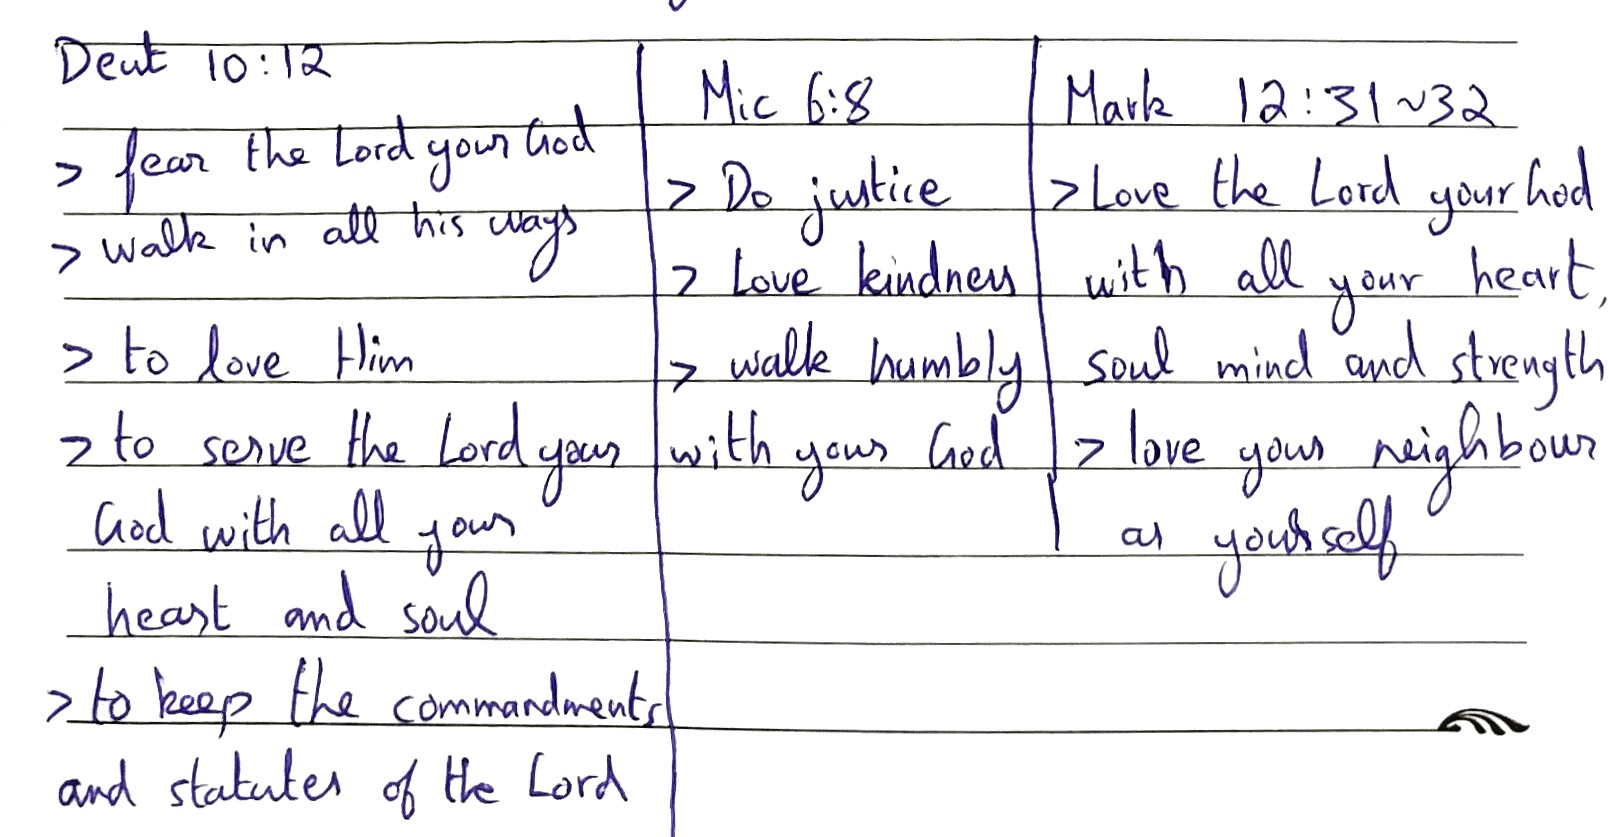 Deut 10:12
> fear the Lord your God
> walk in all his ways
> to love Him
> to serve the Lord your
God with all your
heart and soul
> to keep the commandments
and statutes of the Lord
Mic 6:8
> Do justice
> Love kindness
> walk humbly
with your God
Mark 12:31~32
> Love the Lord your God
with all your heart,
soul mind and strength
> love your neighbour
as yourself